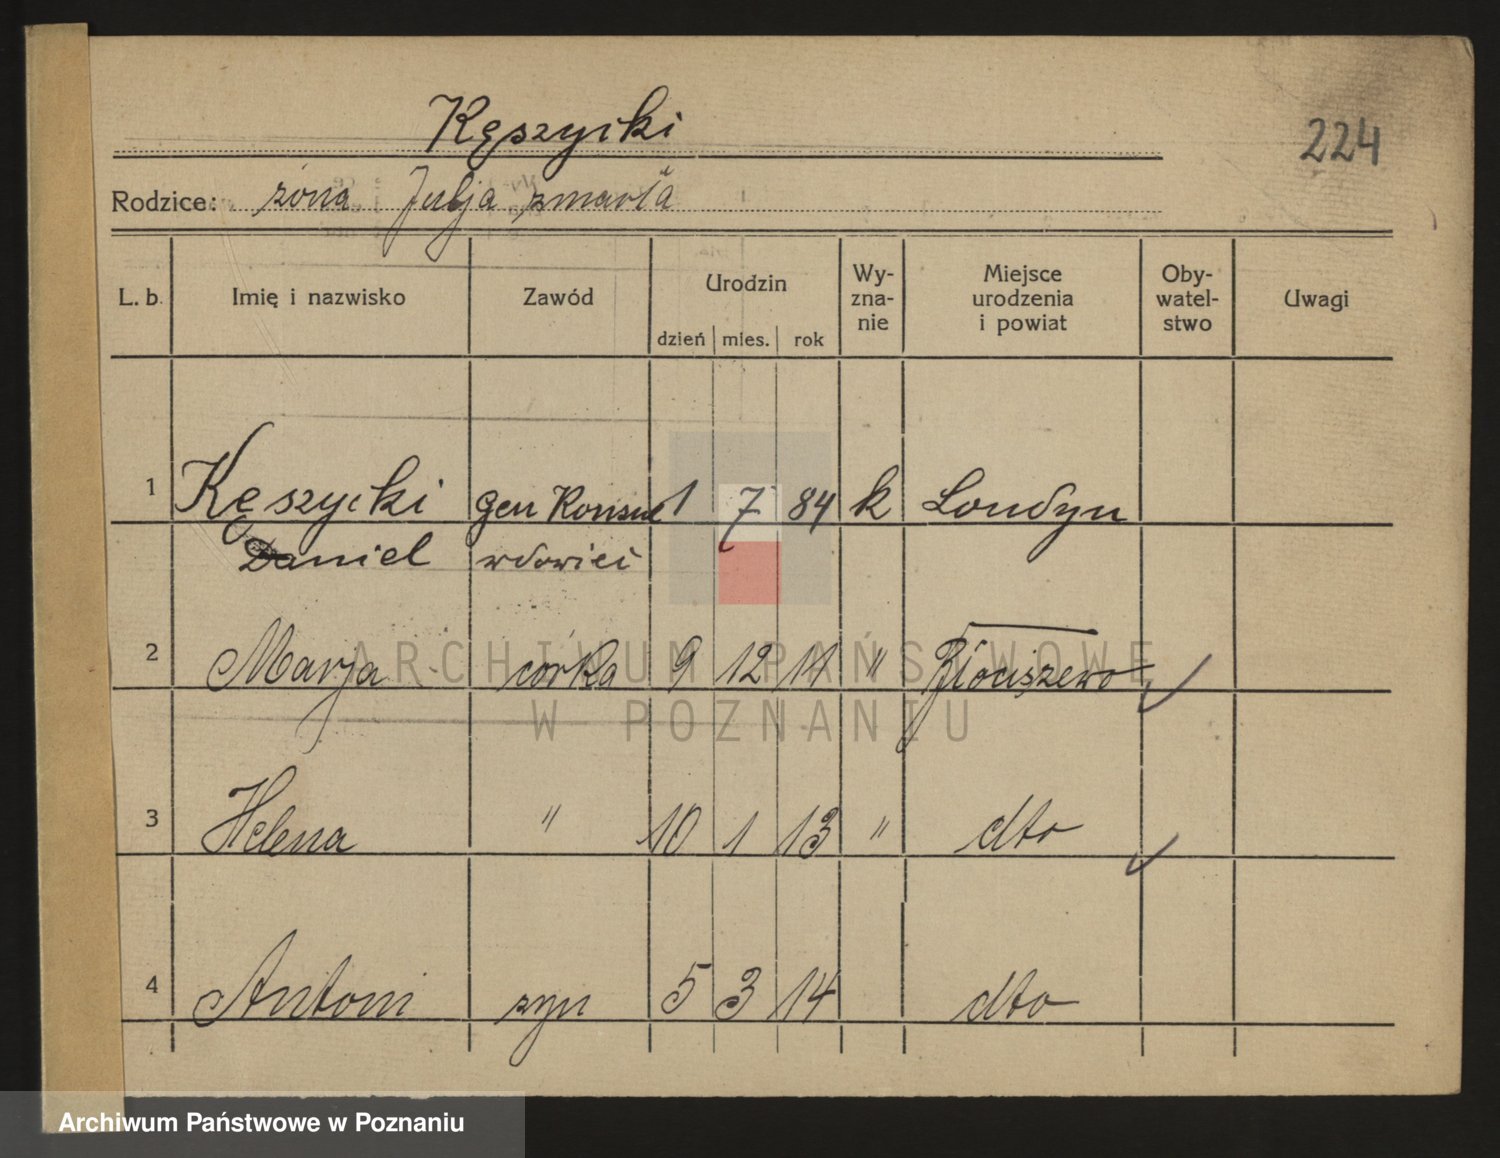 Kęszycki
224
Rodzice: żona Julja zmarła
L. b. Imię i nazwisko Zawód Urodzin dzień mies. rok Wy-zna-nie Miejsce urodzenia i powiat Oby-watel-stwo Uwagi
1 Kęszycki gen Konsul 1 7 84 k Londyn
Daniel wdowiec
2 Marja córka 9 12 11 " Błociszewo
3 Helena " 10 1 13 " dto
4 Antoni syn 5 3 14 dto
ARCHIWUM PAŃSTWOWE
W POZNANIU
Archiwum Państwowe w Poznaniu